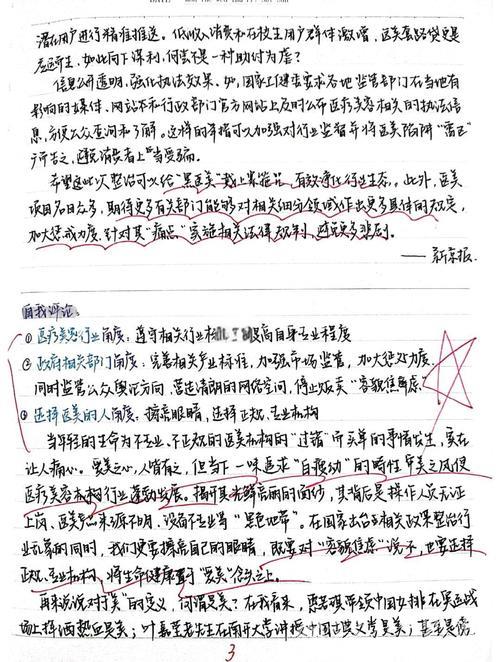 潜在用户进行精准推送。低收入消费和在校生用户群体激增，医美套路贷更是
应运而生，如此向下渗利，何尝不是一种助纣为虐？
信息公开透明，强化执法效果。如，国家卫健委要求各地监管部门在当地有
影响的媒体、网站和行政部门官方网站上及时公布医疗美容相关的执法信
息，方便公众查询和了解。这样的举措可以加强对行业监督并将医美陷阱“晒”
于市上，避免消费者上当受骗。
希望这些次整治可以给“黑医美”戴上紧箍咒，有效净化行业生态。此外，医美
项目名目众多，期待更多有关部门能够对相关细分领域作出更多具体的规定，
加大惩戒力度，针对其“痛点”实施相关法律规制，避免更多悲剧。
——新京报
自我评论：
①医疗美容行业角度：遵守相关行业 提高自身专业程度
②政府相关部门角度：完善相关产业标准，加强市场监管，加大惩处力度。
同时监管公众舆论方向，营造清朗的网络空间，停止贩卖“容貌焦虑”
③选择医美的人角度：擦亮眼睛，选择正规、专业机构
当年轻的生命为不专业、不正规的医美机构的“过错”所买单的事情发生，实在
让人痛心。爱美之心，人皆有之，但当下一味追求“白瘦幼”的畸性审美之风使
医疗美容机构行业蓬勃发展。揭开其光鲜亮丽的面纱，其背后是操作人员无证
上岗、医美产品来源不明、设备不专业等“黑色地带”。在国家出台相关政策整治行
业乱象的同时，我们更要擦亮自己的眼睛，既要对“容貌焦虑”说不，也要选择
正规、专业机构，将生命健康置于“爱美”念头之上。
再来说说对于“美”的定义，何谓美？在我看来，惠若琪带领中国女排在奥运战
场上挥洒热血是美；叶嘉莹老先生在南开大学讲授中国古典文学是美；甚至是
3